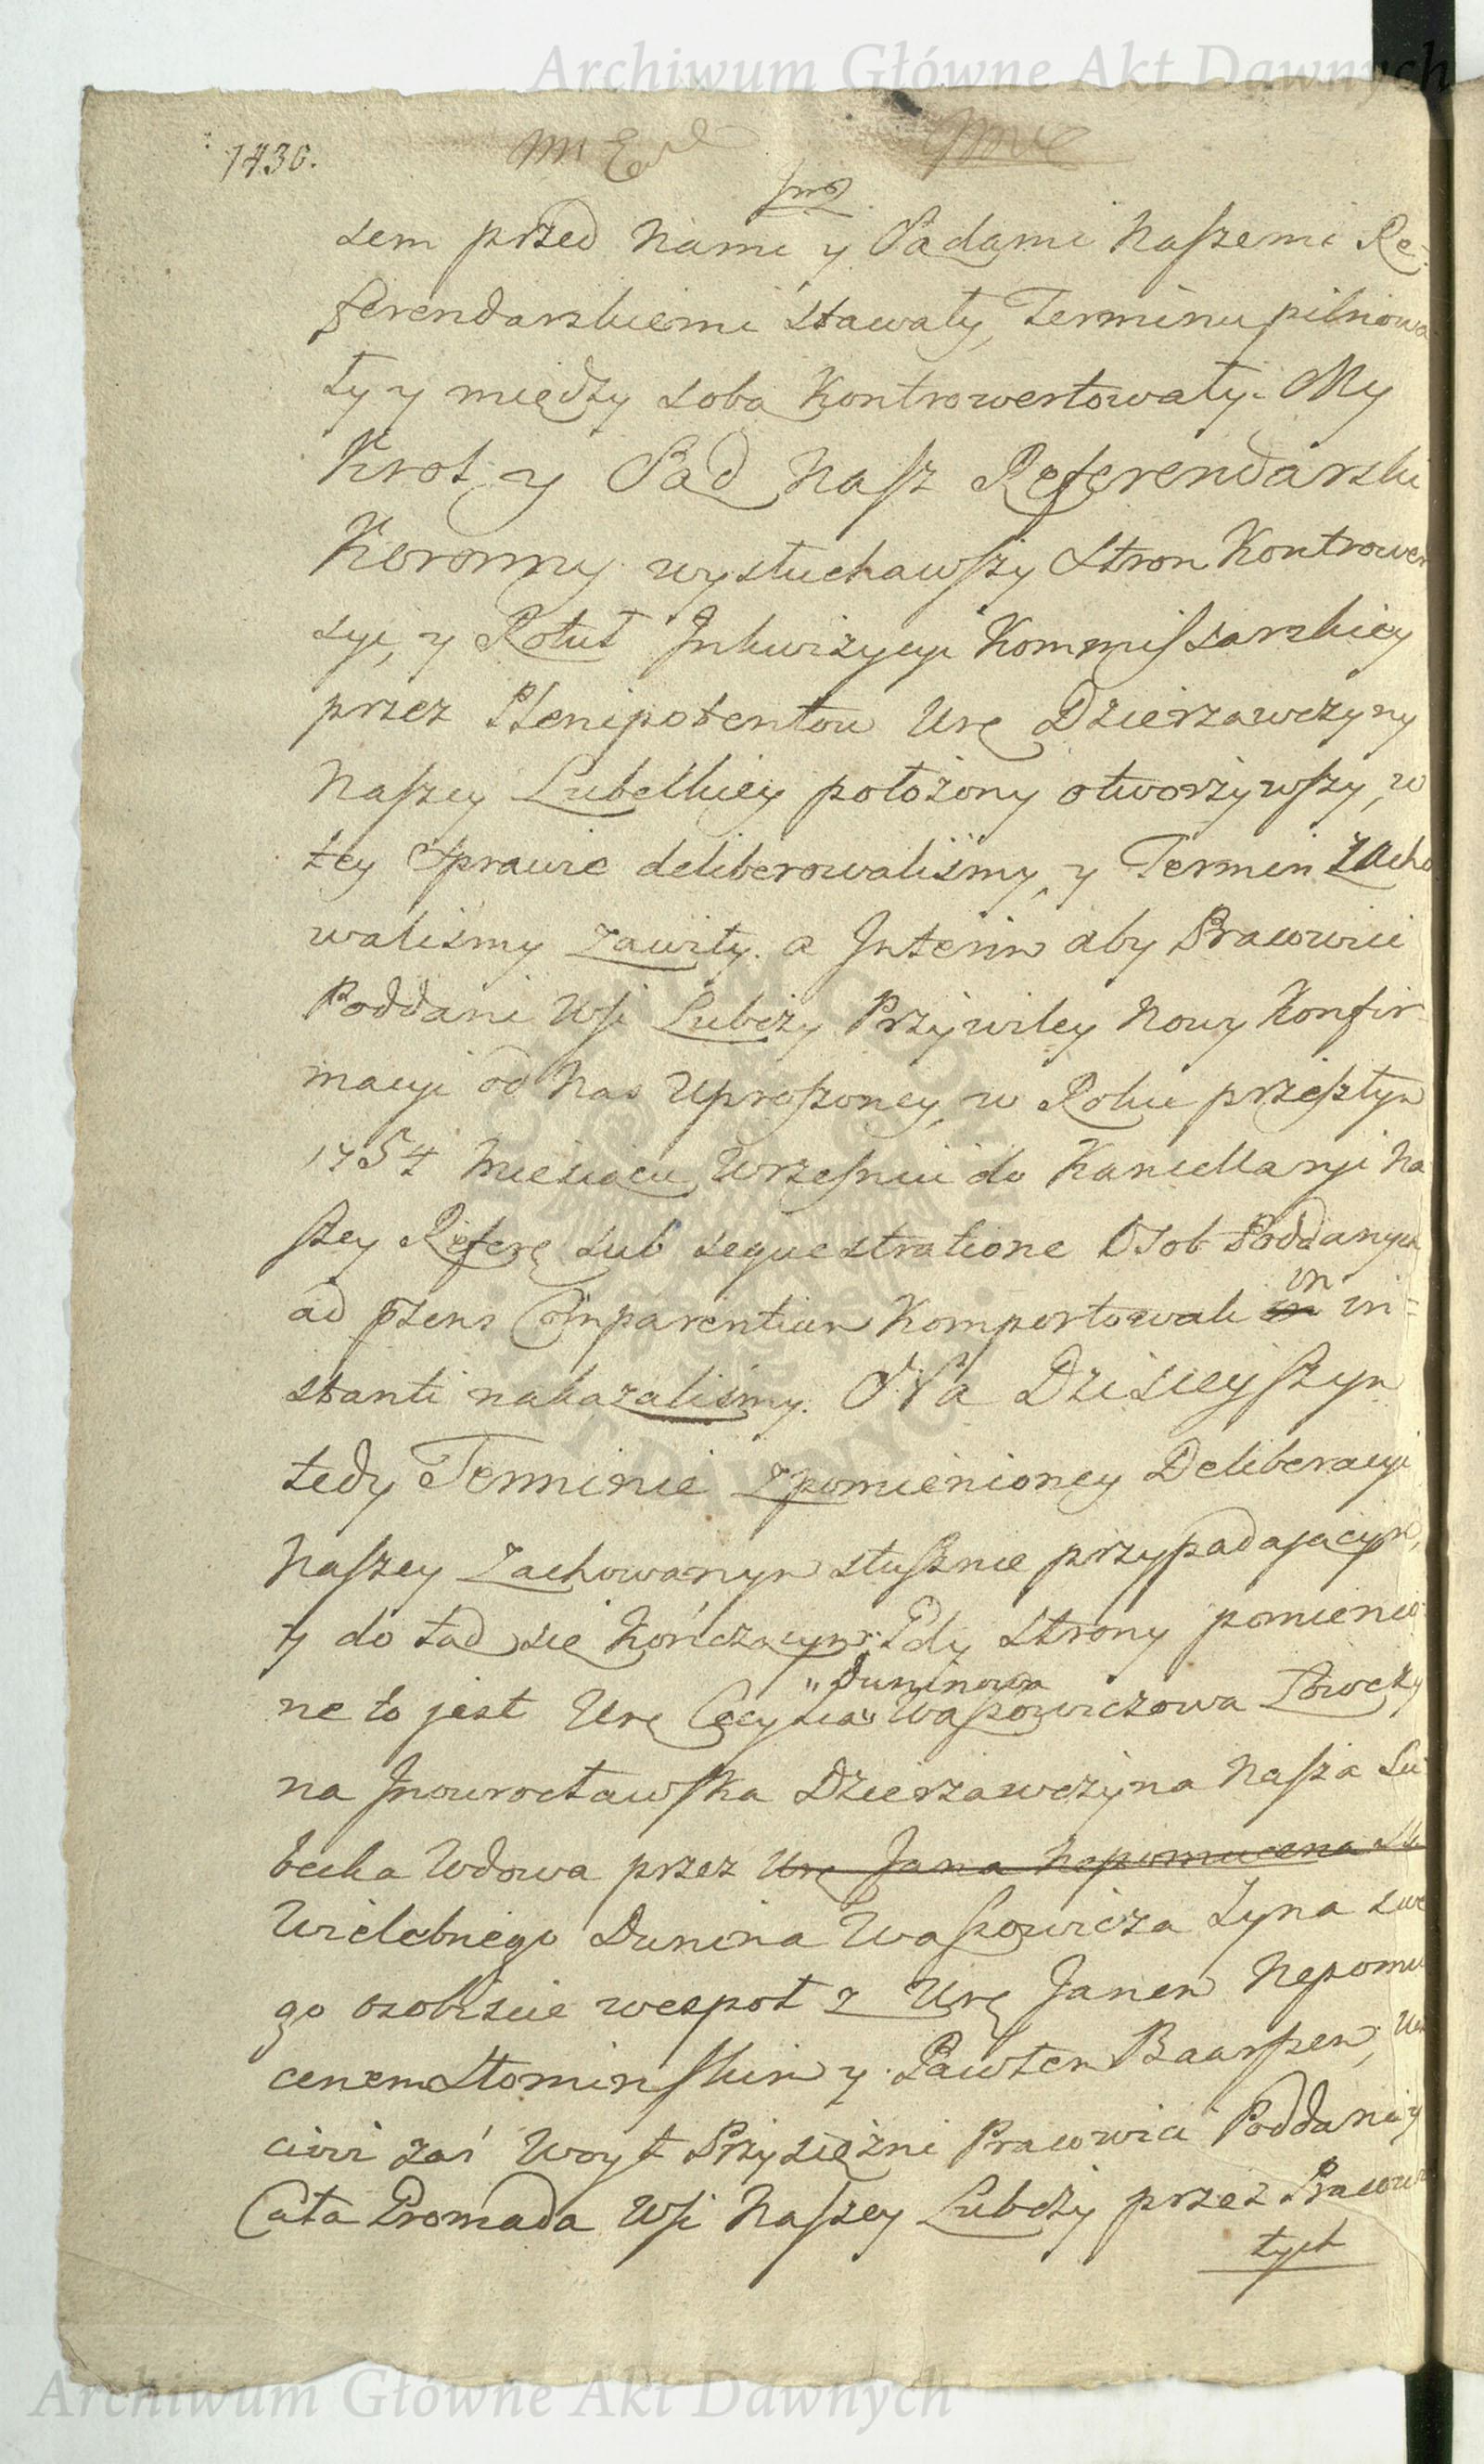 Archiwum Główne Akt Dawnych
1430.
sem przed Nami y Sądami Naszemi Re-
ferendarskiemi stawały, Terminu pilnowa
ły y między sobą Kontrowertowały. My
Krol y Sąd Nasz Referendarski
Koronny wysłuchawszy Stron Kontrower
syi, y Rotuł Inkwizycyi Kommissarskiey
przez Plenipotentow Urę Dzierzawczyny
Naszey Lubeckiey położony otworzywszy, w
tey Sprawie deliberowaliśmy, y Termin Zacho
waliśmy zawity. a Interim aby Pracowici
Poddani Wsi Lubczy Przywiley Nowy Konfir-
macyi od Nas Uproszoney, w Roku przeszłym
1754 Miesiącu Wrześniu do Kancellaryi Na
szey Referę sub sequestratione Osob Poddanych
ad psens Comparentium Komportowali in in=
stanti nakazaliśmy. Na Dzisieyszym
tedy Terminie z pomienioney Deliberacyi
Naszey Zachowanym słusznie przypadaiącym,
y do tąd się Kończącym: Gdy Strony pomienio
ne to jest Urę Cecylia "Duninowa" Wąsowiczowa Łowczy
na Inowrocławska Dzierzawczyna Nasza Lu
becka Wdowa przez Urę Jana Nepomucena
Wielebnego Dunina Wąsowicza Syna swe
go osobiście wespoł z Urę Janem Nepomu
cenem Słominskim y Pawłem Baarszem, Ucz
ciwi zaś Woyt Przysiężni Pracowici Poddani y
Cała Gromada Wsi Naszey Lubczy przez Pracowi
tych
Archiwum Główne Akt Dawnych